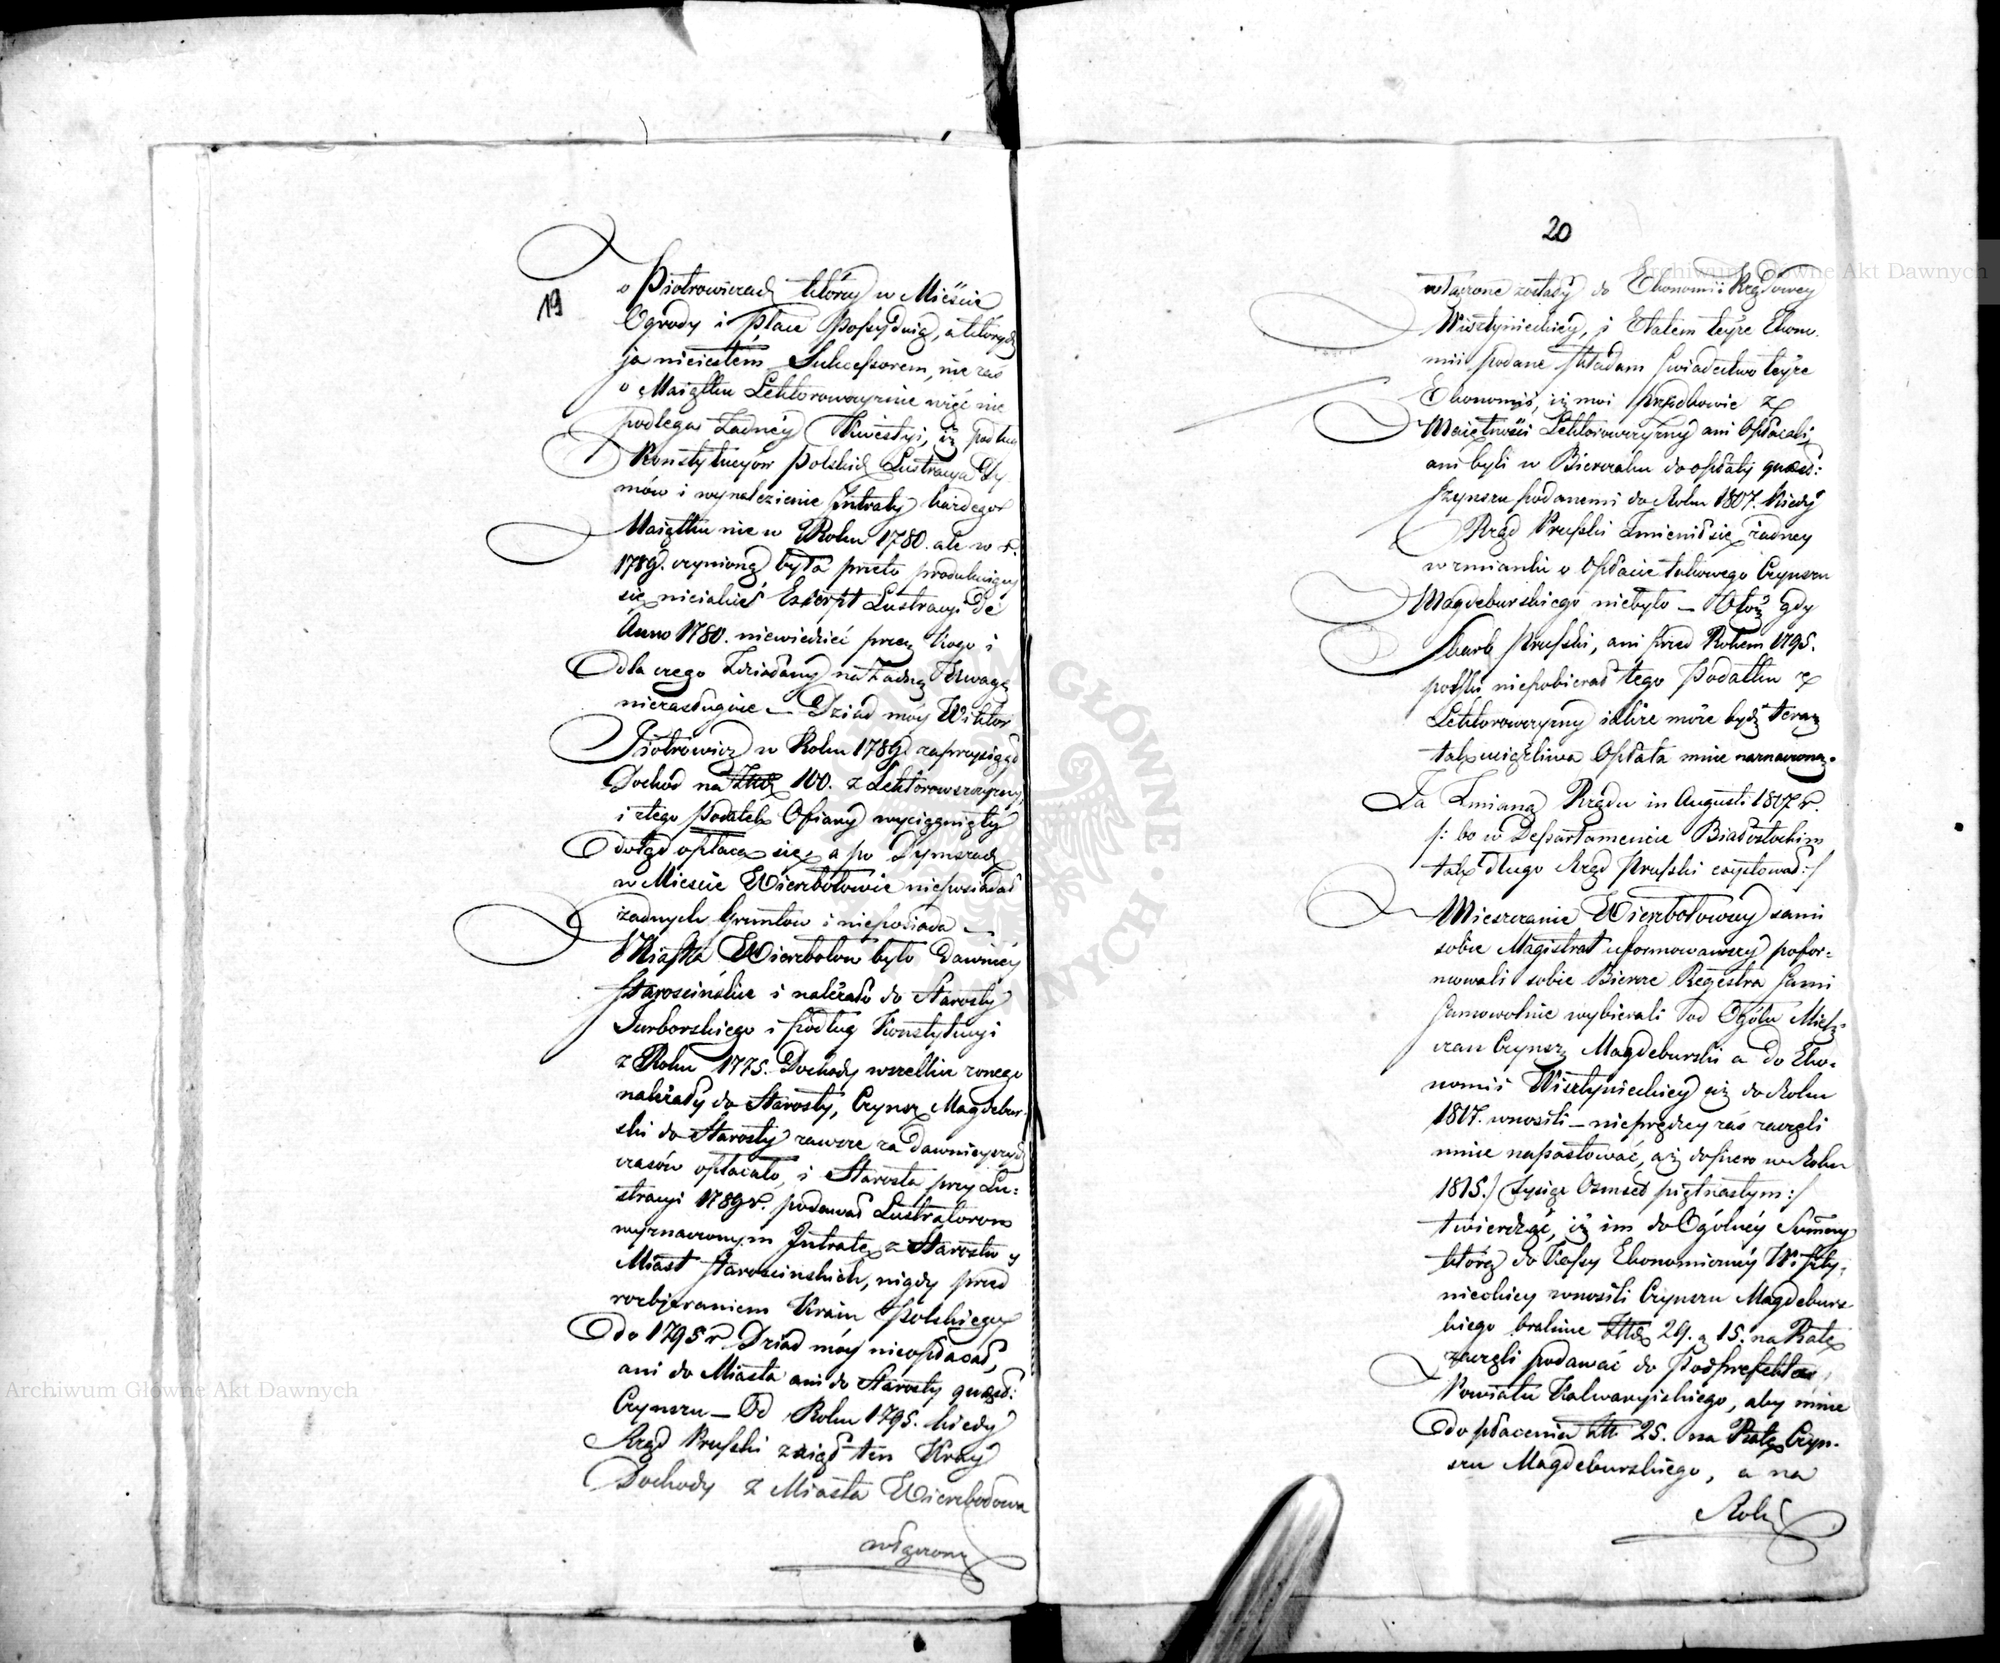 19
o Piotrowiczach którzy w Mieście
Ogrody i Place Possydują, a których
ja nieiestem Sukcessorem, nie zaś
o Maiątku Lektorowszczyznie więc nie
podlega Żadney Kwestyi, iż podług
Konstytucyów Polskich Lustracya Dy-
mów i wynalezienie Intraty każdego
Maiątku nie w Roku 1780. ale w r.
1789. czynioną była przeto produkuiący
się nieiakiś Exerpt Lustracyi de
Anno 1780. niewiedzieć przez kogo i
dla czego Zdziałany na Żadną Uwagę
niezasługuie — Dziad móy Wiktor
Piotrowicz w Roku 1789. zaprzysiągł
Dochod na 100. z Lektorowszczyzny,
i z tego Podatek Ofiary wyciągnięty
dotąd opłaca się, a po Dymszach
w Mieście Wierzbołowie nieposiadał
żadnych Gruntow i nieposiada —
Miasta Wierzbołow było Dawniey
Starościńskie i należało do Starosty
Jurborskiego i podług Konstytucyi
z Roku 1775. Dochody wszelkie z onego
należały do Starosty, Czynsz Magdebur-
ski do Starosty zawsze za Dawnieyszych
czasów opłacało, i Starosta przy Lu-
stracyi 1789 r. podawał Lustratorom
wyznaczonym Intratę z Starostw y
Miast Starościnskich, nigdy przed
rozbieraniem Kraiu Polskiego
do 1795 r. Dziad móy nieopłacał,
ani do Miasta ani do Starosty quæst:
Czynszu — Od Roku 1795. kiedy
Rząd Pruski zaiął ten Kray
Dochody z Miasta Wierzbołowa
włączone
20
włączone zostały do Ekonomii Rządowey
Wisztynieckiey, i Etatem teyże Ekono-
mii podane składam świadectwo teyże
Ekonomii, iż moi Przodkowie z
Maiętności Lektorowszczyzny ani Opłacali,
ani byli w Bierczku do opłaty quæst:
Czynszu podanemi do Roku 1807. kiedy
Rząd Pruski Zmienił się, żadney
wzmianki o Opłacie takowego Czynszu
Magdeburskiego niebyło — Otoż gdy
Skarb Pruski, ani przed Rokiem 1795.
polski niepobierał tego Podatku z
Lektorowszczyzny iakże może bydź teraz
tak uciążliwa Opłata mnie naznaczona.
Za Zmianą Rządu in Augusti 1807 r.
/: bo w Departamencie Białostockim
tak długo Rząd Pruski exystował :/
Mieszczanie Wierzbołowscy sami
sobie Magistrat uformowawszy pofor-
mowali sobie Biercze Regestra sami
samowolnie wybierali od Ogółu Miesz-
czan Czynsz Magdeburski a do Eko-
nomii Wisztynieckiey aż do Roku
1817. wnosili — nieprędzey zaś zaczęli
mnie napastować, aż dopiero w Roku
1815. / Tysiąc Osmset piętnastym :/
twierdząc, iż im do Ogólney Summy
którą do Kassy Ekonomiczney Wiszty-
nieckiey wnosili Czynszu Magdeburs-
kiego brakuie 29. g 15. na Ratę
zaczęli podawać do Podprefekta
Powiatu Kalwaryiskiego, aby mnie
do płacenia 25. na Ratę Czyn-
szu Magdeburskiego, a na
Rok
Archiwum Główne Akt Dawnych
Archiwum Główne Akt Dawnych